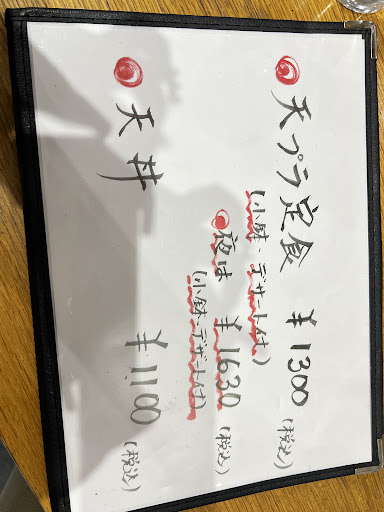 天プラ定食 ¥1300(税込)
(小鉢・デザート付)
夜は ¥1630(税込)
(小鉢・デザート付)
天丼 ¥1100(税込)